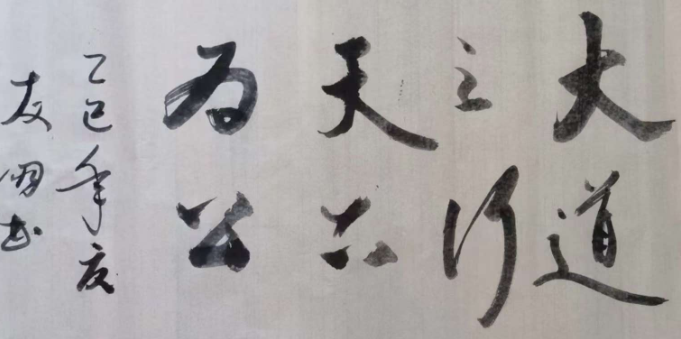 大道
之行
天下
为公
乙巳年夏
友明书